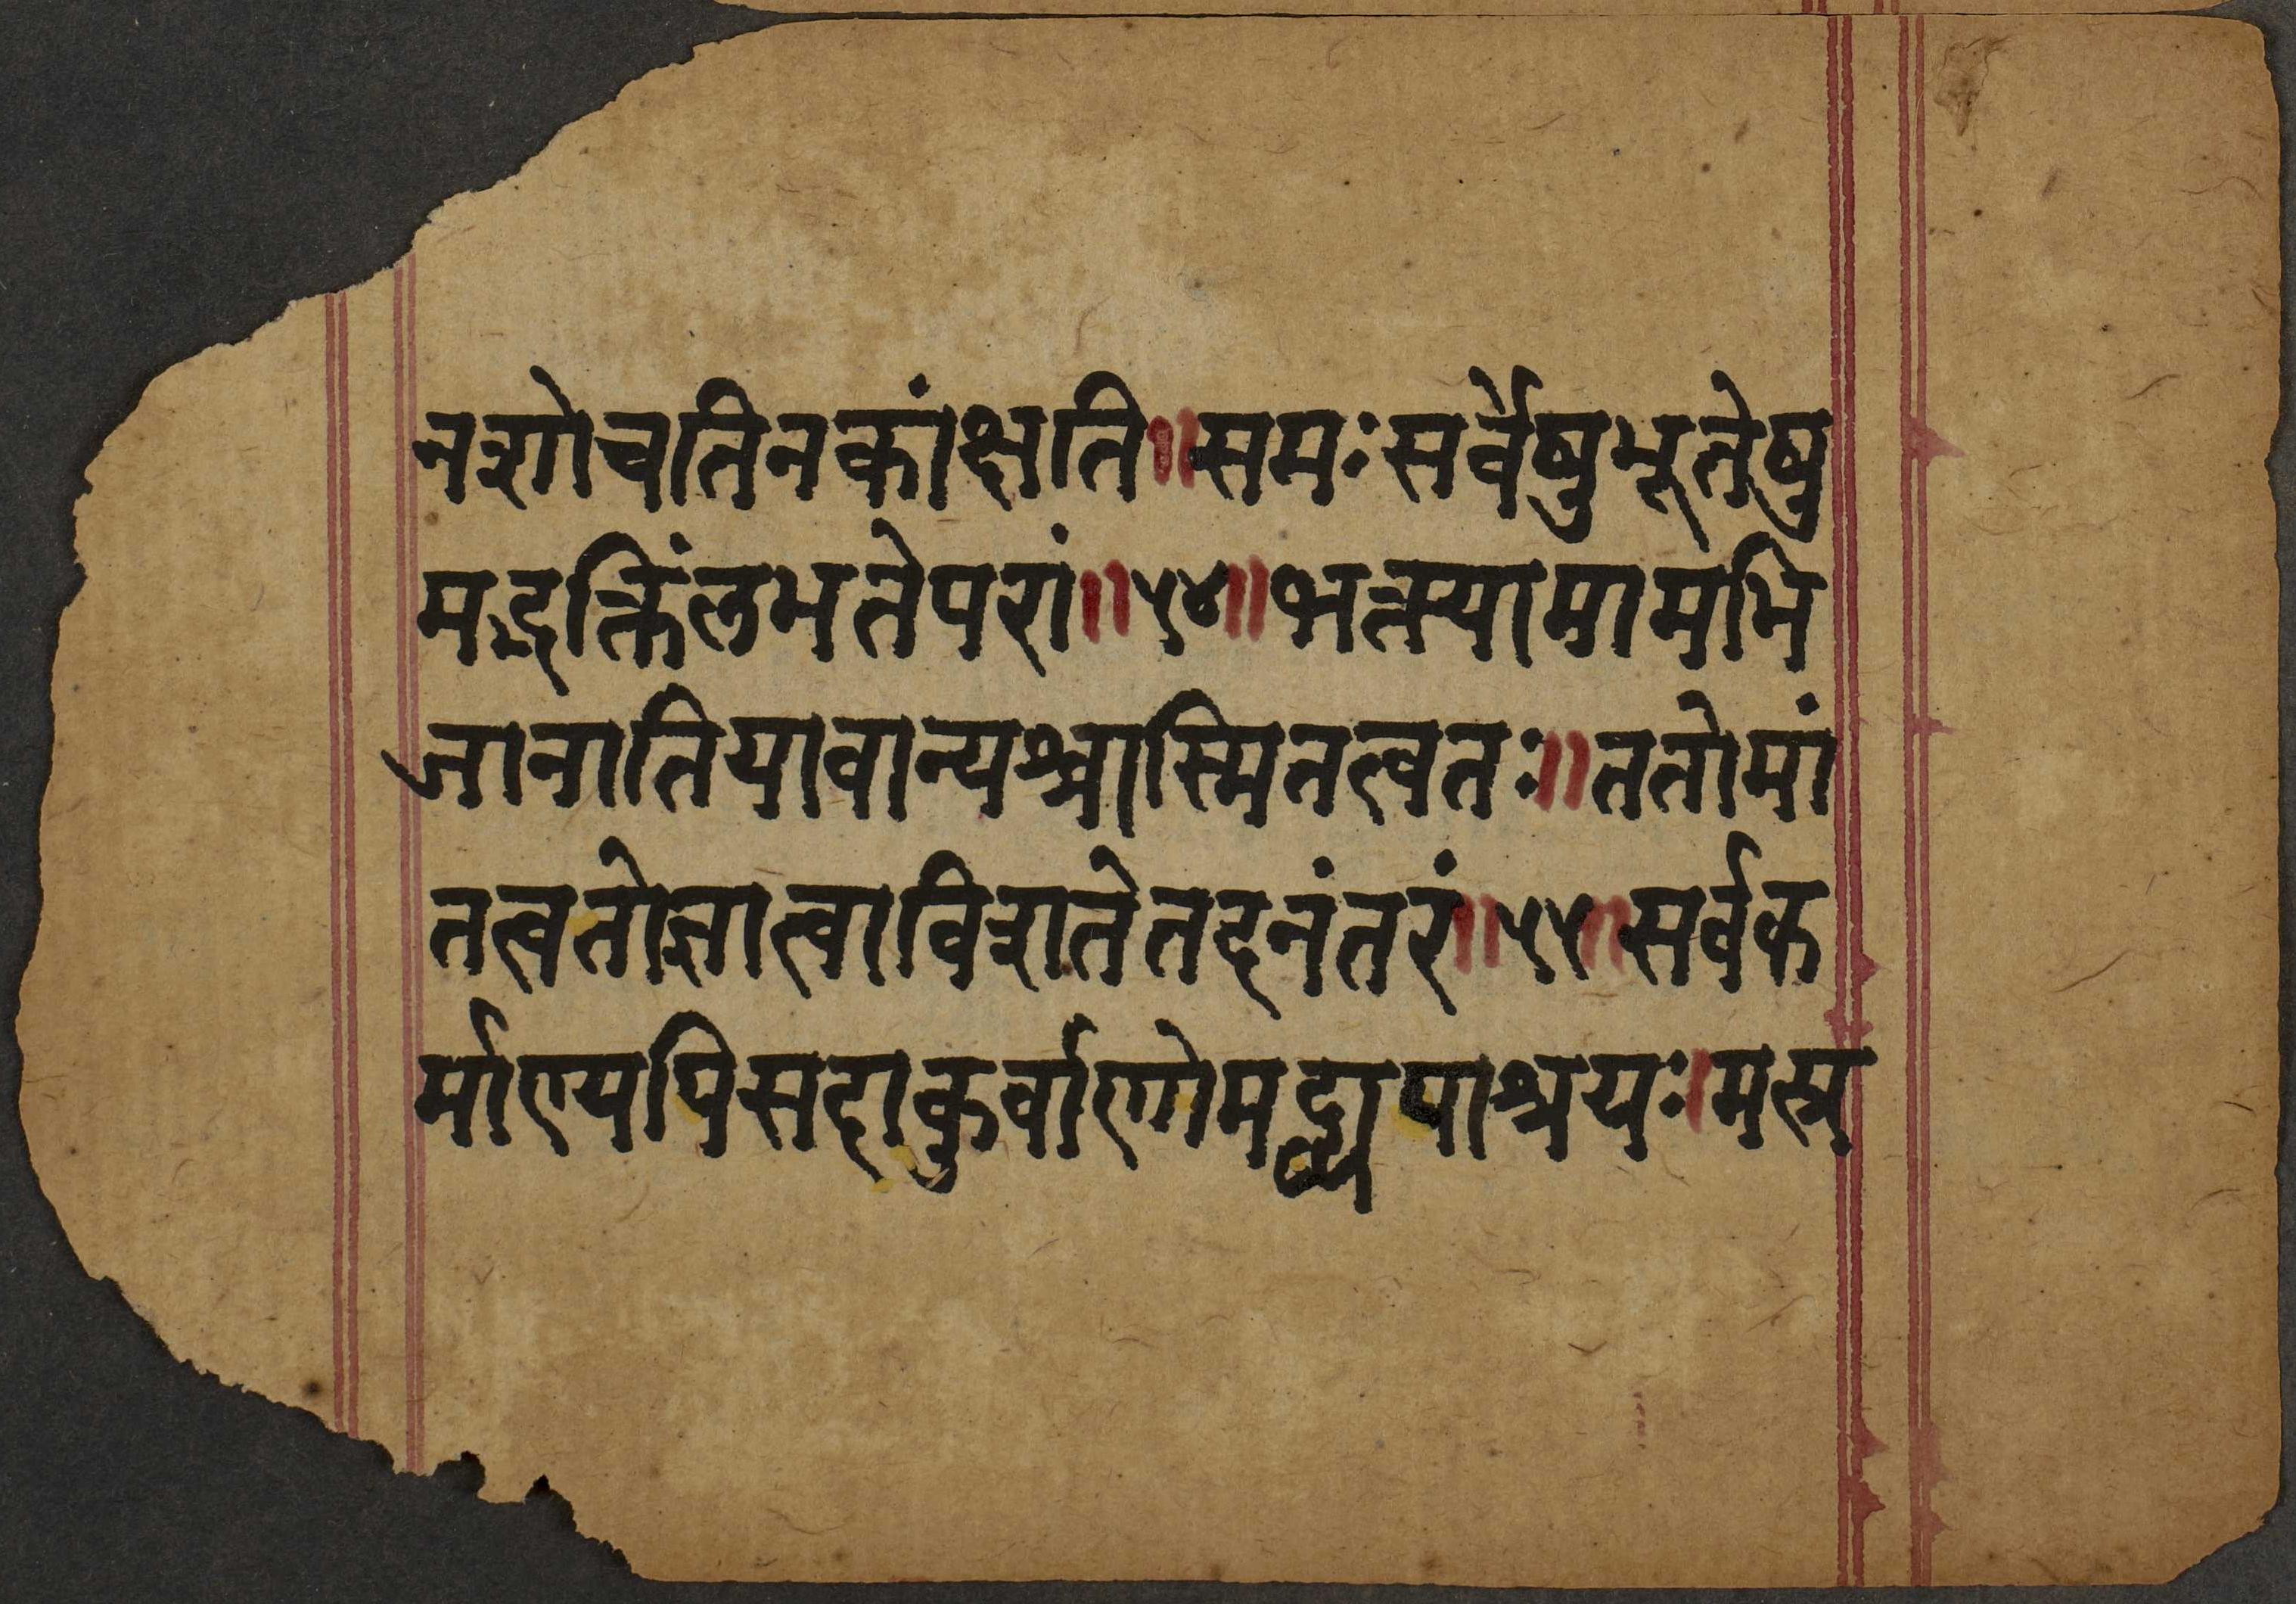 नशोचतिनकांक्षति॥समःसर्वेषुभूतेषु
मद्भक्तिंलभतेपरां॥५४॥भक्त्यामामभि
जानातियावान्यश्चास्मितत्वतः॥ततोमां
तत्वतोज्ञात्वाविशतेतदनंतरं॥५५॥सर्वक
र्माण्यपिसदाकुर्वाणोमद्व्यपाश्रयः।मत्प्र